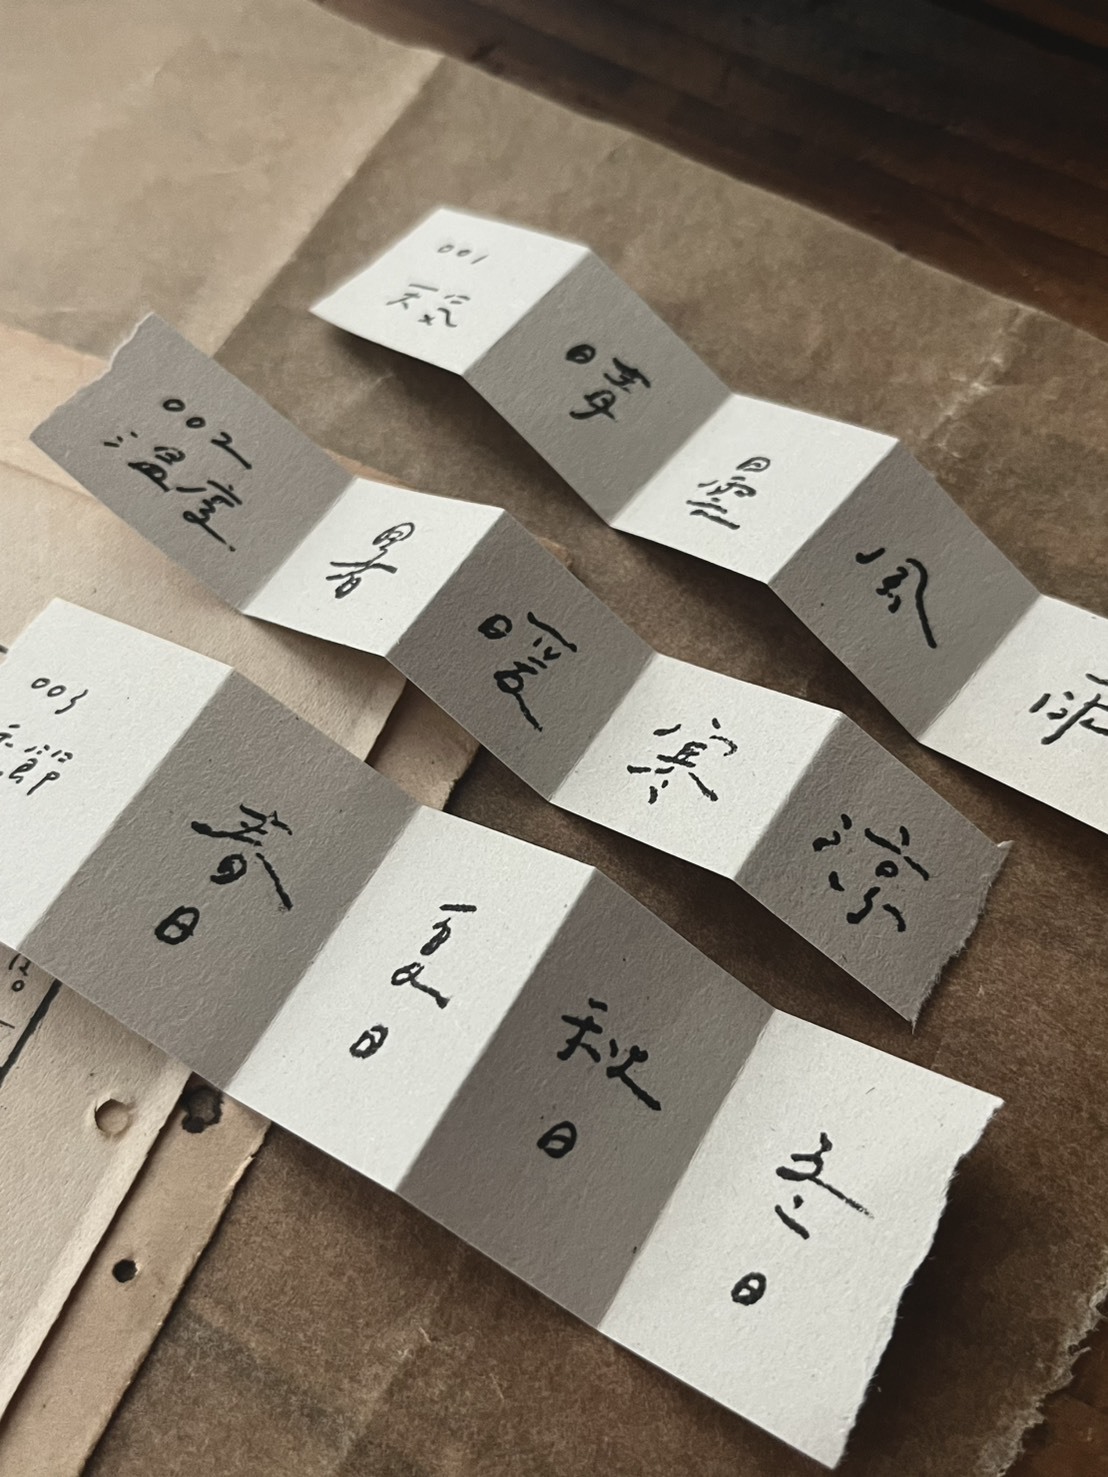 001
天気
晴
曇
風
002
温度
暑
暖
寒
涼
003
季節
春
日
夏
日
秋
日
冬
日